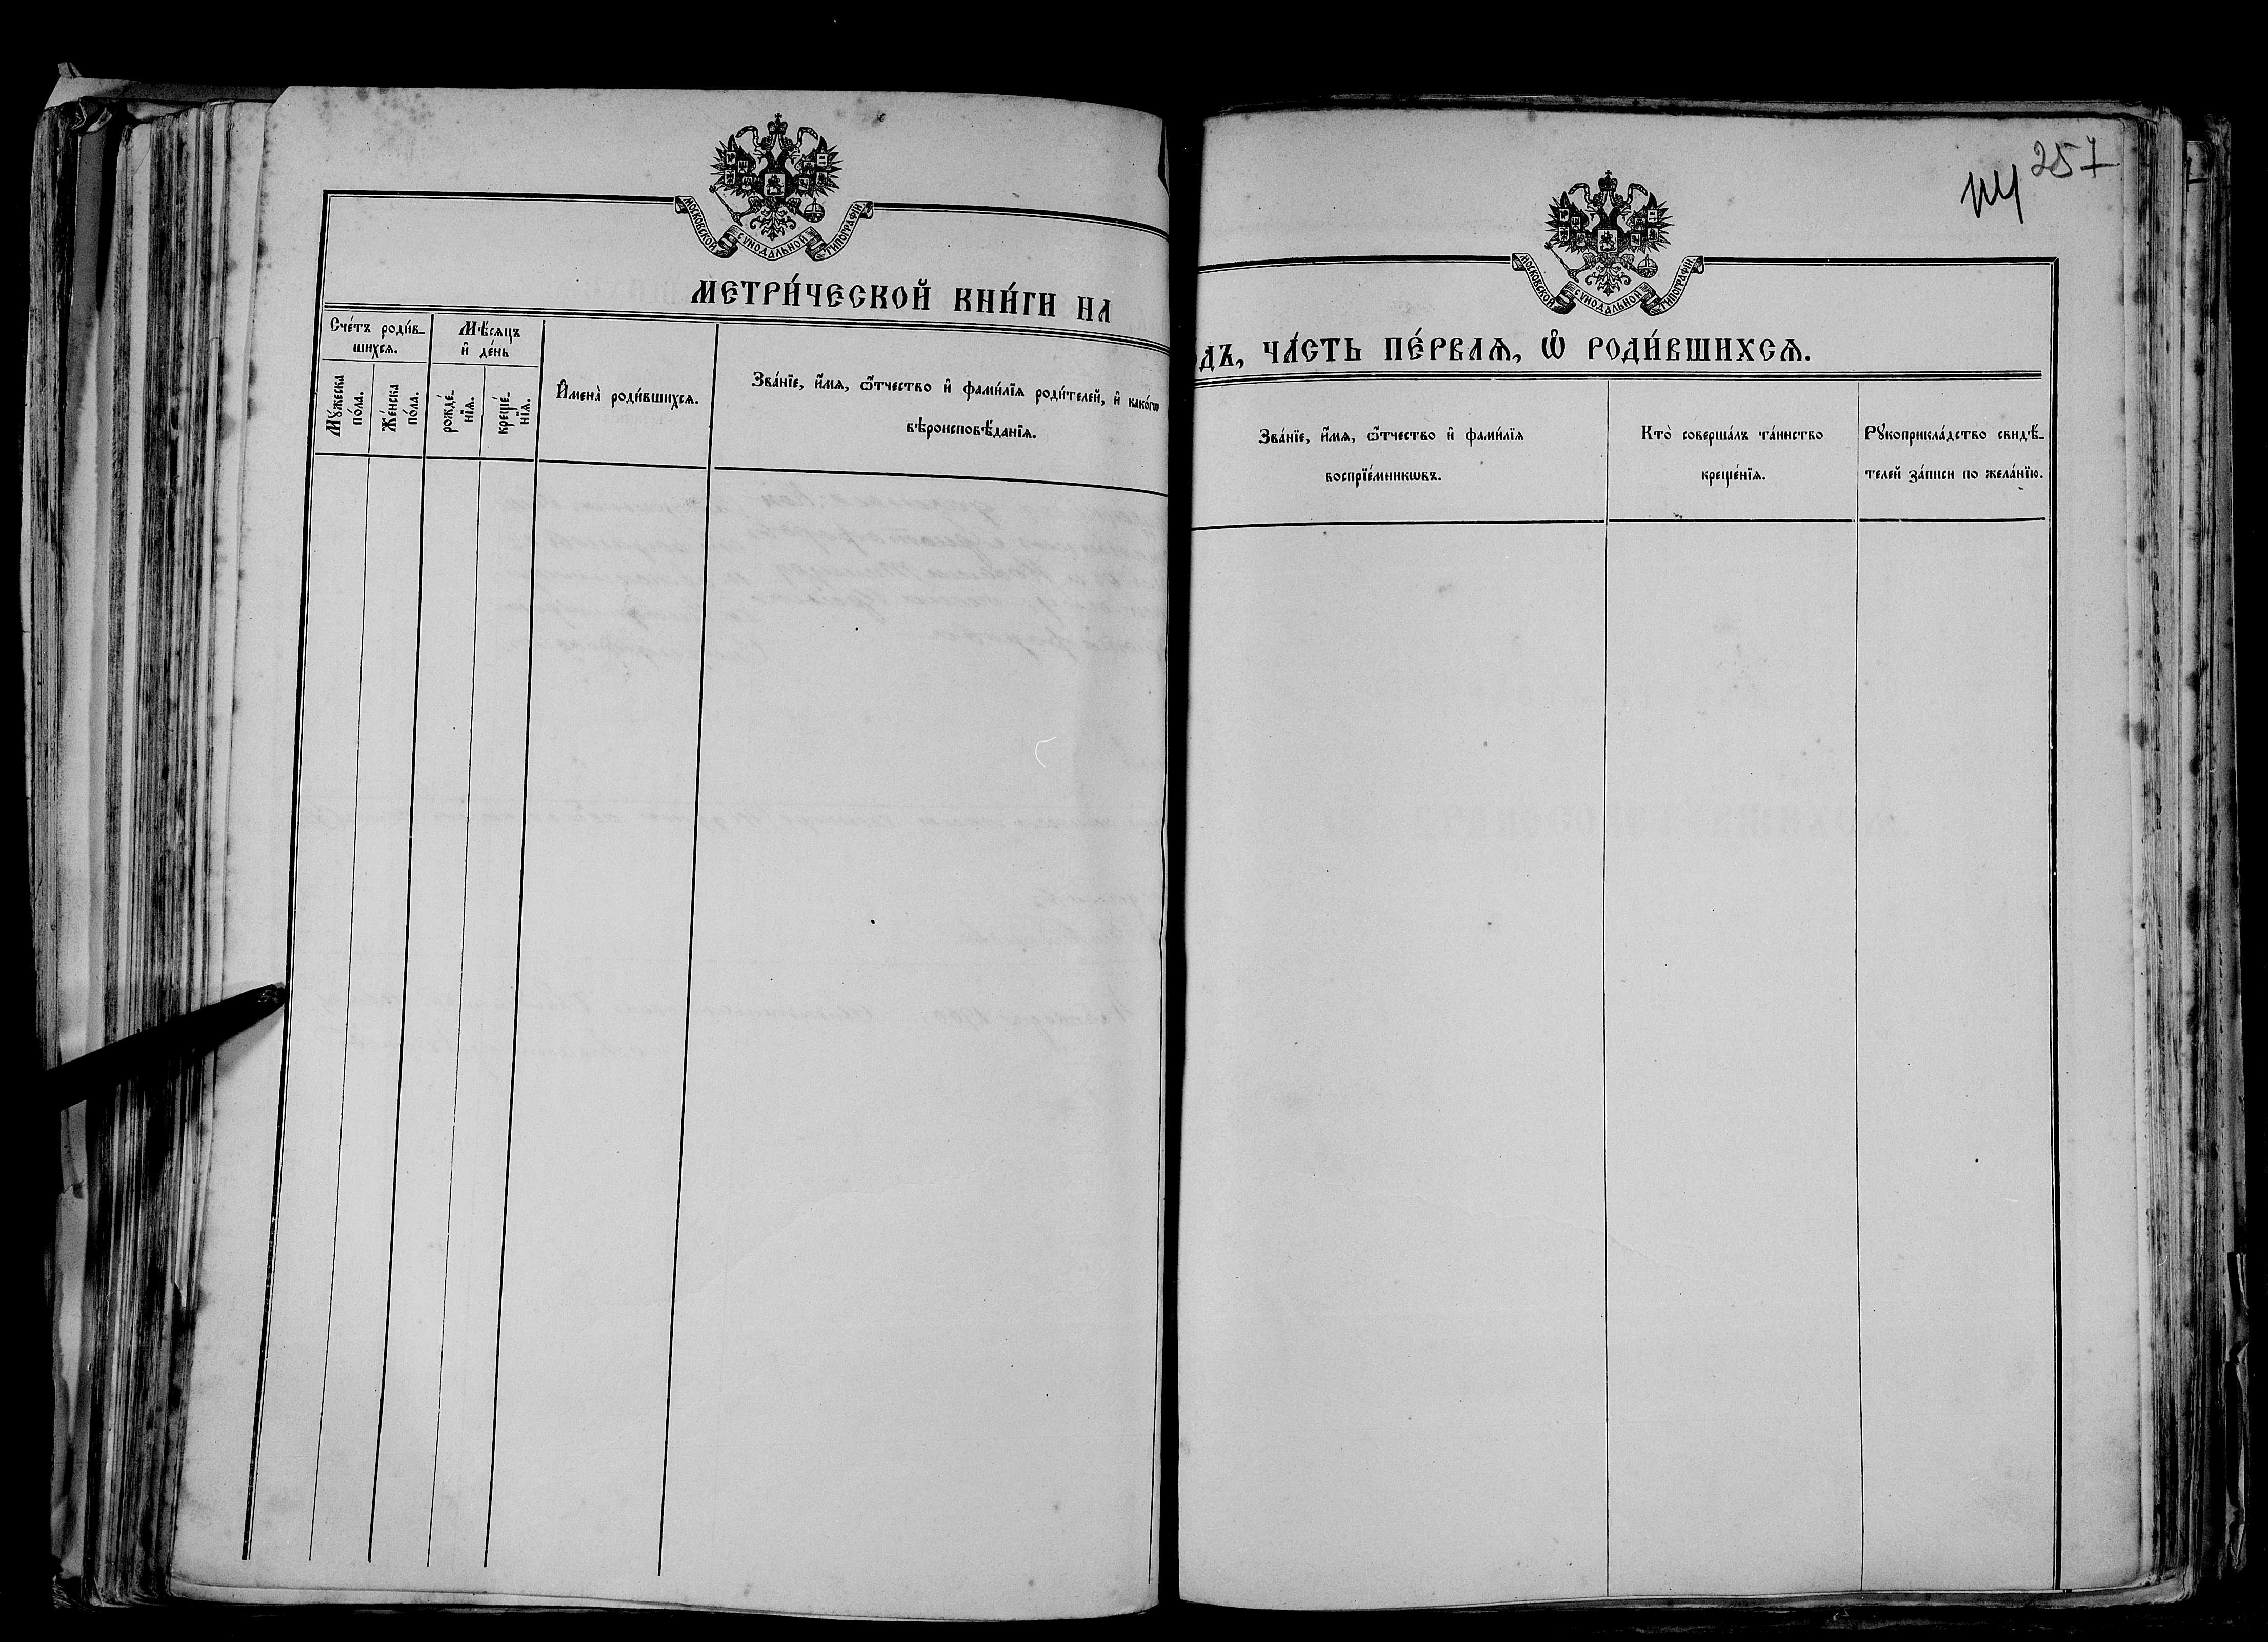 МОСКОВСКОЙ СѴНОДАЛЬНОЙ ТИПОГРАФІИ
МЕТРИ́ЧЕСКОЙ КНИ́ГИ НА
Сче́тъ роди́в-
шихсѧ.
Мѣ́сѧцъ
и҆ де́нь
Мꙋ́жеска
по́ла.
Же́нска
по́ла.
рожде́-
нїѧ.
креще́-
нїѧ.
И҆мена̀ роди́вшихсѧ.
Зва́нїе, и҆́мѧ, ѻ҆́тчество и҆ фами́лїѧ роди́телей, и҆ како́гѡ
вѣроисповѣ́данїѧ.
257
114
МОСКОВСКОЙ СѴНОДАЛЬНОЙ ТИПОГРАФІИ
ДЪ, ЧА́СТЬ ПЕ́РВАѦ, Ѡ҆ РОДИ́ВШИХСѦ.
Зва́нїе, и҆́мѧ, ѻ҆́тчество и҆ фами́лїѧ
воспрїе́мникѡвъ.
Кто̀ соверша́лъ та́инство
креще́нїѧ.
Рꙋкоприкла́дство свидѣ́-
телей за́писи по жела́нїю.